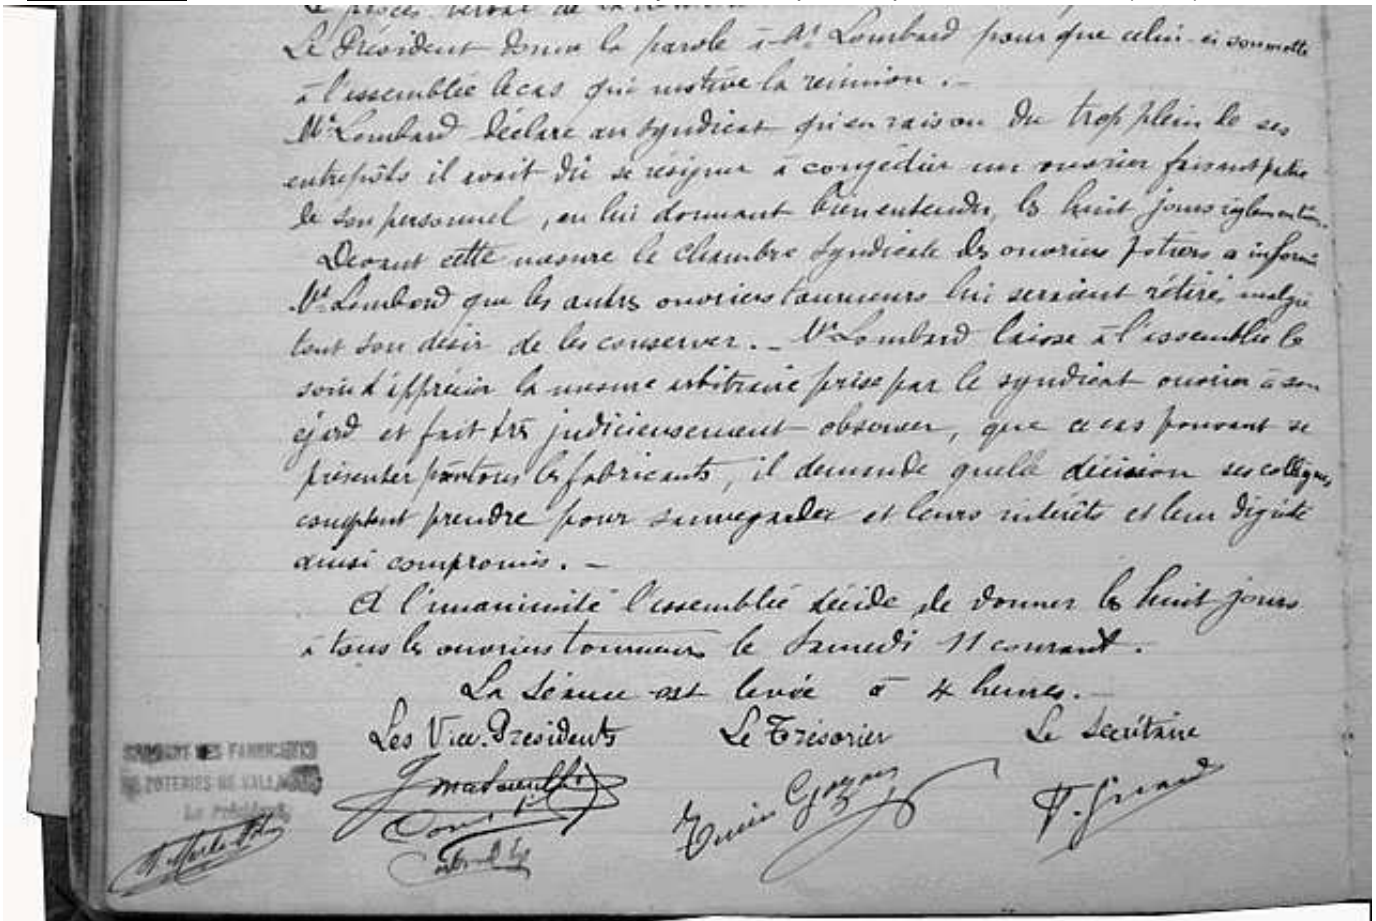 Le procès verbal de la
Le Président donne la parole à Mr Lombard pour que celui-ci soumette
à l'assemblée le cas qui motive la réunion. _
Mr Lombard déclare au syndicat qu'en raison du trop plein de ses
entrepôts il avait dû se résigner à congédier un ouvrier faisant partie
de son personnel, en lui donnant bien entendu, les huit jours réglementaires.
Devant cette mesure la chambre syndicale des ouvriers potiers a informé
Mr Lombard que les autres ouvriers tourneurs lui seraient retirés malgré
tout son désir de les conserver. _ Mr Lombard laisse à l'assemblée le
soin d'apprécier la mesure arbitraire prise par le syndicat ouvrier à son
égard et fait très judicieusement observer, que ce cas pouvant se
présenter pour tous les fabricants, il demande quelle décision ses collègues
comptent prendre pour sauvegarder et leurs intérêts et leur dignité
ainsi compromis. _
A l'unanimité l'assemblée décide de donner les huit jours
à tous les ouvriers tourneurs le Samedi 11 courant.
La Séance est levée à 4 heures. _
Les Vice-Présidents Le Trésorier Le Secrétaire
SYNDICAT DES FABRICANTS
DE POTERIES DE VALLAURIS
Le Président,